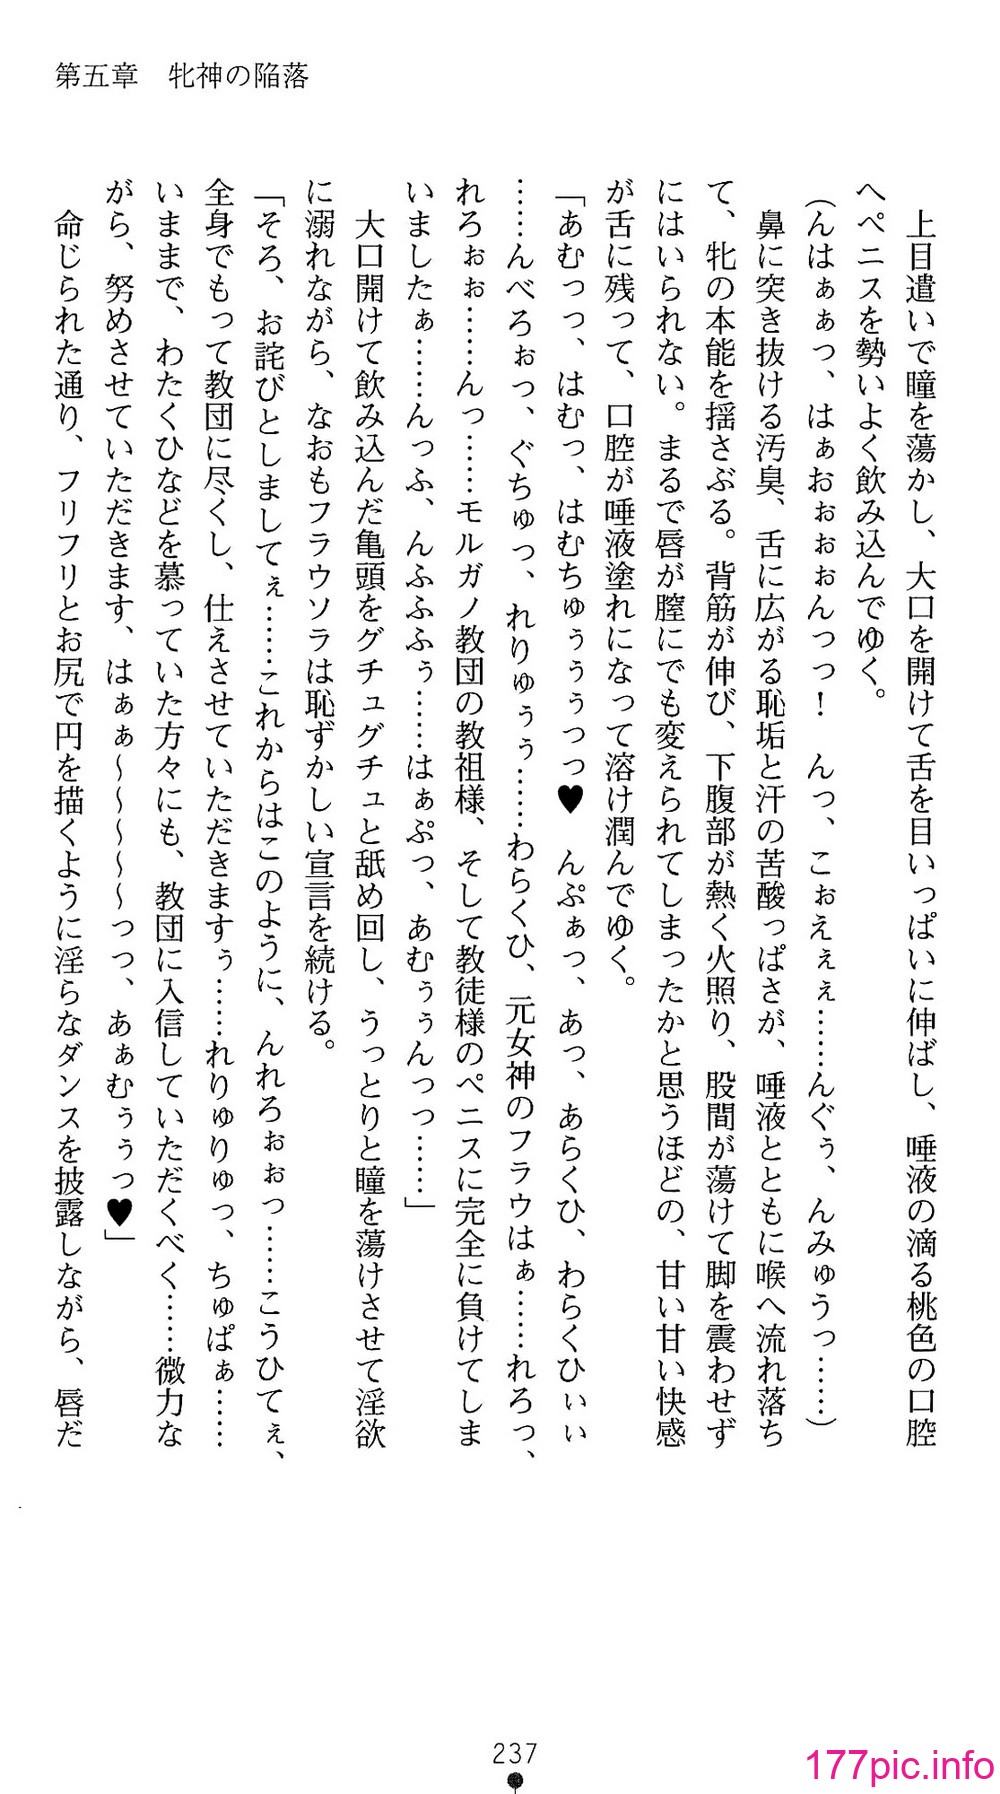 第五章　牝神の陥落
　上目遣いで瞳を蕩かし、大口を開けて舌を目いっぱいに伸ばし、唾液の滴る桃色の口腔
へペニスを勢いよく飲み込んでゆく。
（んはぁぁっ、はぁおぉぉぉんっっ！　んっ、こぉえぇぇ……んぐぅ、んみゅうっ……）
　鼻に突き抜ける汚臭、舌に広がる恥垢と汗の苦酸っぱさが、唾液とともに喉へ流れ落ち
て、牝の本能を揺さぶる。背筋が伸び、下腹部が熱く火照り、股間が蕩けて脚を震わせず
にはいられない。まるで唇が膣にでも変えられてしまったかと思うほどの、甘い甘い快感
が舌に残って、口腔が唾液塗れになって溶け潤んでゆく。
「あむっっ、はむっ、はむちゅぅぅぅっっ♥　んぷぁっ、あっ、あらくひ、わらくひぃぃ
……んべろぉっ、ぐちゅっ、れりゅぅぅ……わらくひ、元女神のフラウはぁ……れろっ、
れろぉぉ……んっ……モルガノ教団の教祖様、そして教徒様のペニスに完全に負けてしま
いましたぁ……んっふ、んふふふぅ……はぁぷっ、あむぅぅんっっ……」
　大口開けて飲み込んだ亀頭をグチュグチュと舐め回し、うっとりと瞳を蕩けさせて淫欲
に溺れながら、なおもフラウソラは恥ずかしい宣言を続ける。
「そろ、お詫びとしましてぇ……これからはこのように、んれろぉぉっ……こうひてぇ、
全身でもって教団に尽くし、仕えさせていただきますぅ……れりゅりゅっ、ちゅぱぁ……
いままで、わたくひなどを慕っていた方々にも、教団に入信していただくべく……微力な
がら、努めさせていただきます、はぁぁ～～～～っっ、あぁむぅぅっ♥」
　命じられた通り、フリフリとお尻で円を描くように淫らなダンスを披露しながら、唇だ
237
177pic.info